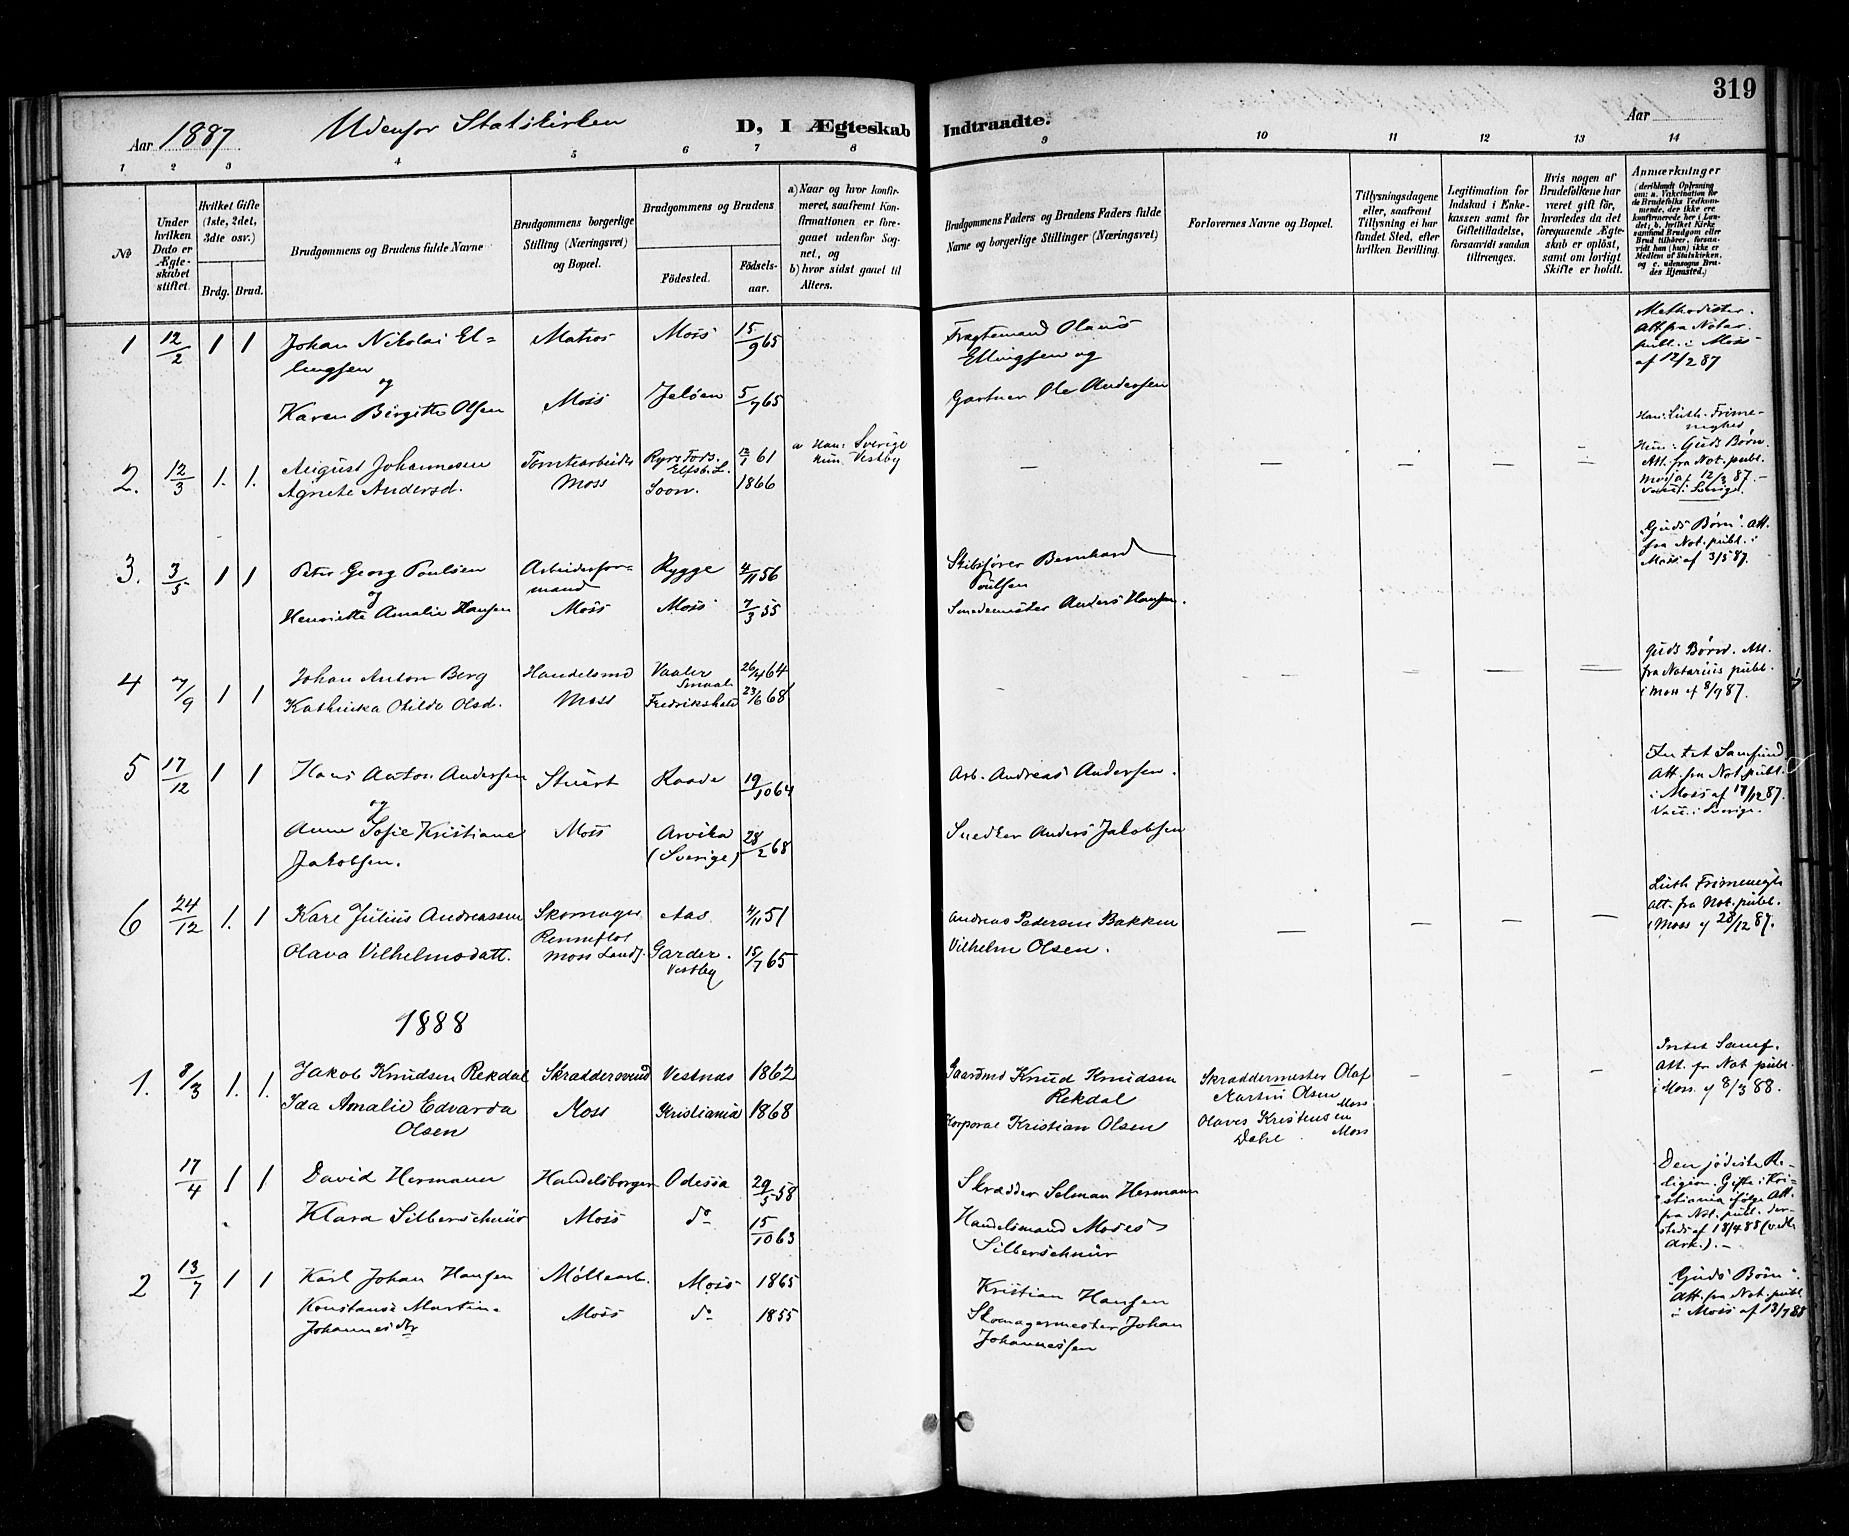 319
Aar 1887 Udenfor Statskirken D, I Ægteskab Indtraadte. Aar
1 2 3 4 5 6 7 8 9 10 11 12 13 14
№
Under hvilken Dato er Ægteskabet stiftet.
Hvilket Gifte (1ste, 2det, 3die osv.)
Brdg. Brud.
Brudgommens og Brudens fulde Navne
Brudgommens borgerlige Stilling (Næringsvei) og Bopæl.
Brudgommens og Brudens
Fødested.
Fødsels-aar.
a) Naar og hvor konfir-
meret, saafremt Kon-
firmationen er fore-
gaaet udenfor Sog-
net, og
b) hvor sidst gaaet til
Alters.
Brudgommens Faders og Brudens Faders fulde
Navne og borgerlige Stillinger (Næringsvei)
Forlovernes Navne og Bopæl.
Tillysningsdagene
eller, saafremt
Tillysning ei har
fundet Sted, efter
hvilken Bevilling.
Legitimation for
Indskud i Enke-
kassen samt for
Giftetilladelse,
forsaavidt saadan
tiltrænges.
Hvis nogen af
Brudefolkene har
været gift før,
hvorledes da det
foregaaende Ægte-
skab er opløst,
samt om lovligt
Skifte er holdt.
Anmærkninger
(deriblandt Oplysning
om: a. Vakcination for
de Brudefolks Vedkom-
mende, der ikke ere
konfirmerede her i Lan-
det; b. hvilket Kirke
samfund Brudgom eller
Brud tilhører, forsaa-
vidt han (hun) ikke er
Medlem af Statskirken,
og c. udensogns Bru-
des Hjemsted.)
1 12/2 1 1 Johan Nikolai El= Matros Moss 15/9 65 Fragtemand Olaus Methodister.
lingsen Ellingsen og Att fra Notar.
og publ. i Moss
Karen Birgitte Olsen Moss Jeløen 5/7 65 Gartner Ole Andersen af 12/2 87
2. 12/3 1. 1. August Johannesen Tomtearbeider Ryrs Fors. Elfsb. L. 12/1 61 a Han: Sverige — — — — — Han: Luth. Frime-
nighed
Agnete Andersd. Moss Soon. 1866 Hun Vestby Hun: Guds Børn.
Att. fra Not. publ.
Moss af 12/3 87.—
Vacc. i Sverige.
3. 3/5 1 1 Peter Georg Poulsen Arbeidsfor= Rygge 4/11 56 Skibsfører Bernhard "Guds Børn". Att.
og mand Poulsen fra Not. publ. i
Henriette Amalie Hansen Moss Moss 7/3 55 Smedemester Anders Hansen. Moss af 3/5 87.
4 7/9 1 1 Johan Anton Berg Handelsmd Vaaler Smaal. 26/4 64 — — — — — Guds Børn. Att.
Kathinka Otilde Olsd. Moss Fredrikshald 23/6 68 fra Notarius publ.
i Moss af 8/9 87.
5 17/12 1 1 Hans Anton Andersen Stuert Raade 19/10 64 Arb. Andreas Andersen. Intet Samfund
og Att. fra Not publ.
Anne Sofie Kristiane Moss Arvika 28/2 68 Snedker Anders Jakobsen i Moss af 17/12 87.
Jakobsen. (Sverige) Vacc. i Sverige.
6 24/12 1. 1 Karl Julius Andreassen Skomager Aas 4/11 51 Andreas Pedersen Bakken — — — — Luth Frimenigh.
Olava Vilhelmsdatt. Moss Lands. Garder. Vestby 15/7 65 Vilhelm Olsen. Att. fra Not. publ.
i Moss af 28/12 87.
1888
1. 8/3 1. 1. Jakob Knudsen Rekdal Skræddersvend Vestnæs 1862 Gaardmd Knud Knudsen Skræddermester Olaf — — — Intet Samf.
Rekdal Martin Olsen Moss Att. fr Not publ.
Ida Amalie Edvarda Moss Kristiania 1868 Korporal Kristian Olsen Olaves Kristensen i Moss af 8/3 88.
Olsen Dahl Moss
17/4 1 1 David Hermann Handelsborger Odessa 29/5 58 Skrædder Selman Hermann Den jødiske Re-
ligion. Gifte i Kri-
Klara Silberschnür Moss do 15/10 63 Handelsmand Moses stiania ifølge Att.
Silberschnür fra Not. publ. der-
steds af 18/4 88 (vedl.
Ark.). —
2 13/7 1 1 Karl Johan Hansen Møllearb. Moss 1865 Kristian Hansen "Guds Børn".
Konstanse Martine Moss do 1855 Skomagermester Johan Att. fra Not. publ
Johannesdtr Johannessen i Moss af 13/7 88